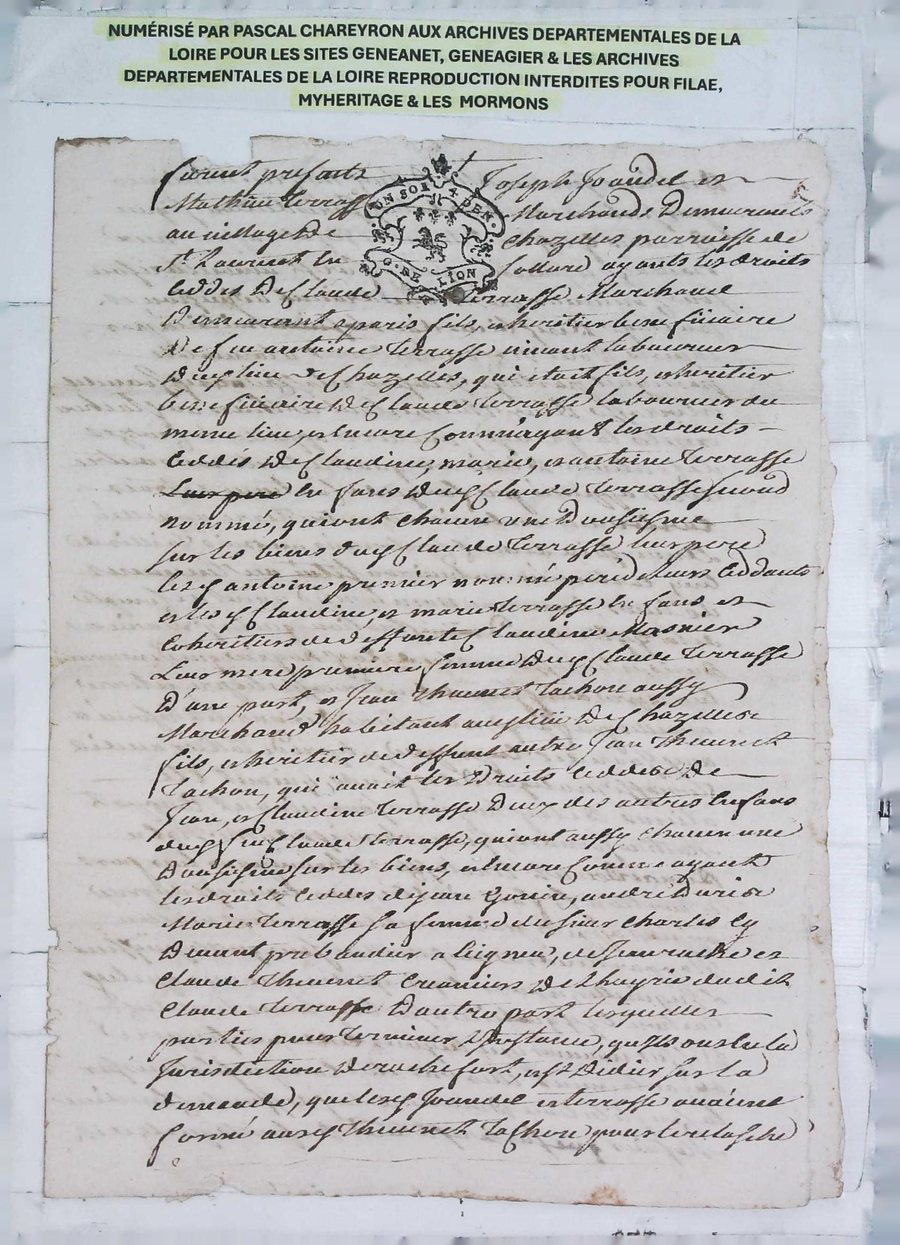 NUMÉRISÉ PAR PASCAL CHAREYRON AUX ARCHIVES DEPARTEMENTALES DE LA
LOIRE POUR LES SITES GENEANET, GENEAGIER & LES ARCHIVES
DEPARTEMENTALES DE LA LOIRE REPRODUCTION INTERDITES POUR FILAE,
MYHERITAGE & LES MORMONS
furent presents Joseph Joandel et
Mathieu terrasse Marchands Demeurants
au village de Chazelles parroisse de
St Laurent en Sollore ayants les droits
ON SOL 4 DEN
G. DE LION
Ceddés De Claude terrasse Marchand
Demeurant a paris fils, et heritier beneficiaire
De feu antoine terrasse vivant laboureur
Dud lieu de Chazelles, qui etoit fils, et heritier
beneficiaire De Claude terrasse laboureur du
meme lieu, et encore Comme ayant les droits
Ceddés De Claudine, marie, et antoine terrasse
Leur pere enfans Dud Claude terrasse second
nommé, qui ont chacun une Dousiesme
sur les biens dud Claude terrasse leur pere
led antoine premier nommé pere de leurs Ceddants
et les d Claudine, et marie terrasse enfans et
Coheritiers de deffunte Claudine Masnier
Leur mere premiere femme Dud Claude terrasse
D'une part, et Jean thevenet tachon aussy
Marchand habitant aud lieu De Chazelles
fils, et heritier de deffunt autre Jean thevenet
tachon, qui avait les Droits Ceddés De
Jean, et Claudine terrasse Deux des autres enfans
dud feu Claude terrasse, qui ont aussy chacun une
Dousiesme sur les biens, et encore Comme ayant
les droits Ceddés de jean Gouin, andré Duris
Marie terrasse sa femme du sieur Charles
et
Claude thevenet Creanciers De l'hoyrie dudit
Claude terrasse D'autre part lesquelles
parties pour terminer l'Instance, qu'ils ont en la
Jurisdiction De rochefort, et St Didier sur la
demande, que les d Joandel et terrasse avaient
formé aud thevenet tachon pour le relasche